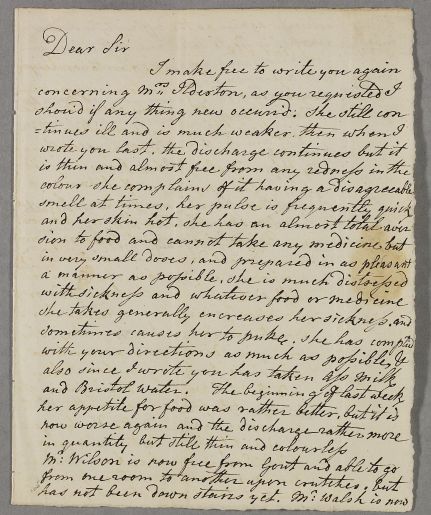 Dear Sir
I make free to write you again
concerning Mrs Ilderton, as you requested I
shou'd if any thing new occurrd. She still con
=tinues ill and is much weaker then when I
wrote you last. the discharge continues but it
is thin and almost free from any redness in the
colour she complains of it having a disagreeable
smell at times, her pulse is frequently quick
and her skin hot. she has an almost total aver
sion to food and cannot take any medicine but
in very small doses, and prepared in as pleasant
a manner as possible. she is much distressed
with sickness and whatever food or medicine
she takes generally encreases her sickness, and
sometimes causes her to puke. she has complied
with your directions as much as possible, &
also since I wrote you has taken Ass Milk
and Bristol Water. The beginning of last week
her appetite for food was rather better, but it is
now worse again and the discharge rather more
in quantity but still thin and colourless
Mr. Wilson is now free from Gout and able to go
from one room to another upon crutches, but
has not been down stairs yet. Mr. Walsh is now